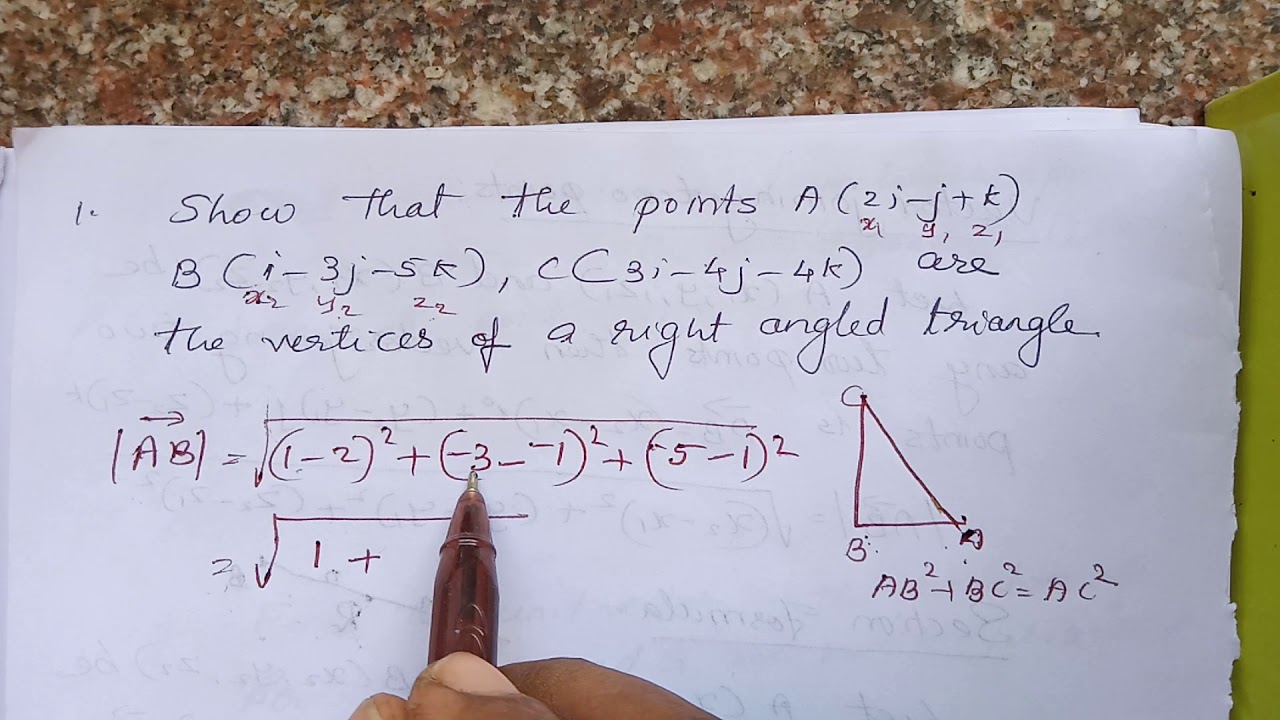 1. Show that the points A(2i-j+k)
x₁ y₁ z₁
B(i-3j-5k), C(3i-4j-4k) are
x₂ y₂ z₂
the vertices of a right angled triangle.
|AB⃗| = √(1-2)² + (-3--1)² + (-5-1)²
= √1 +
C
B
A
AB² + BC² = AC²